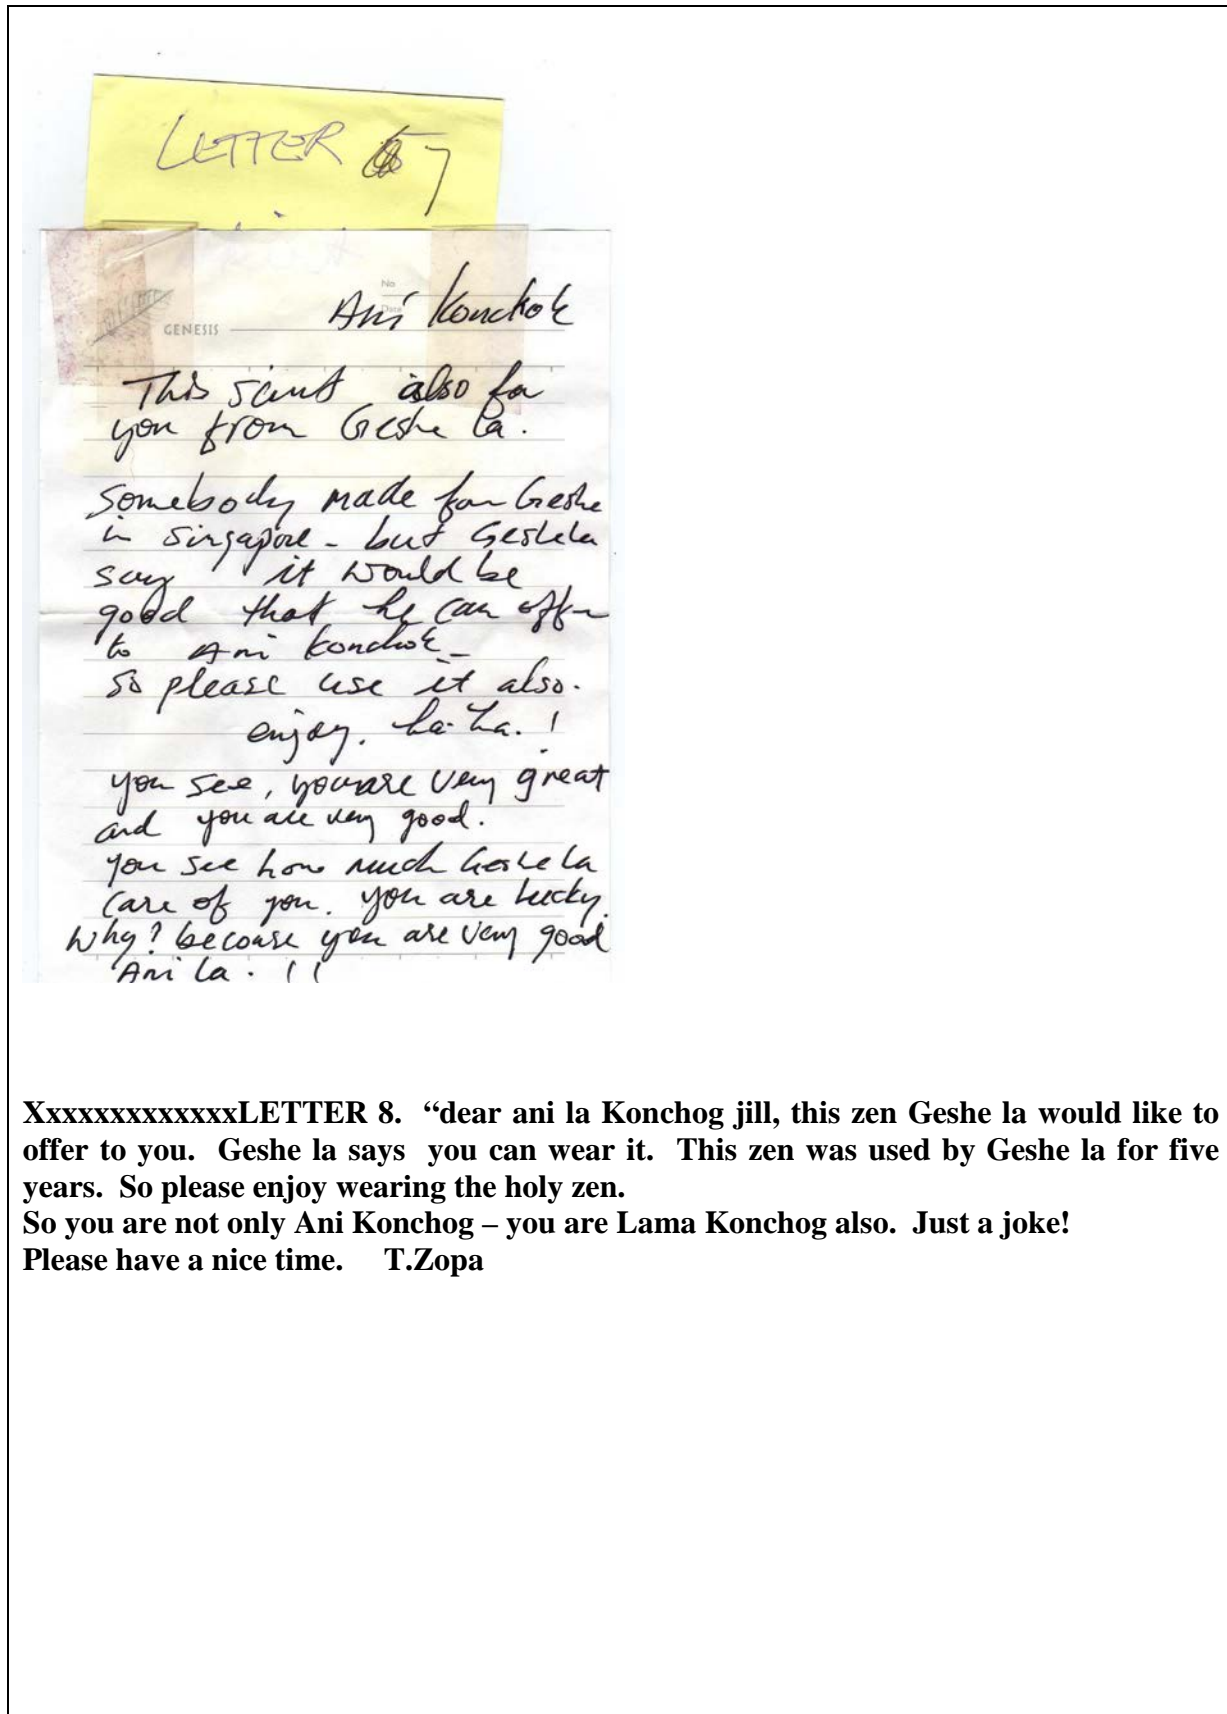 LETTER 7
No
Date
Ani Konchok
GENESIS
This also for
you from Geshe la.
Somebody made for Geshe
in Singapore - but Geshela
say it would be
good that he can offer
to Ani Konchok -
so please use it also.
enjoy. ha-ha. !
you see, you are very great
and you are very good.
you see how much Geshe la
care of you. you are lucky.
Why? becouse you are very good
Ani la. ! !
XxxxxxxxxxxxxLETTER 8.  “dear ani la Konchog jill, this zen Geshe la would like to
offer to you.  Geshe la says  you can wear it.  This zen was used by Geshe la for five
years.  So please enjoy wearing the holy zen.
So you are not only Ani Konchog – you are Lama Konchog also.  Just a joke!
Please have a nice time.    T.Zopa